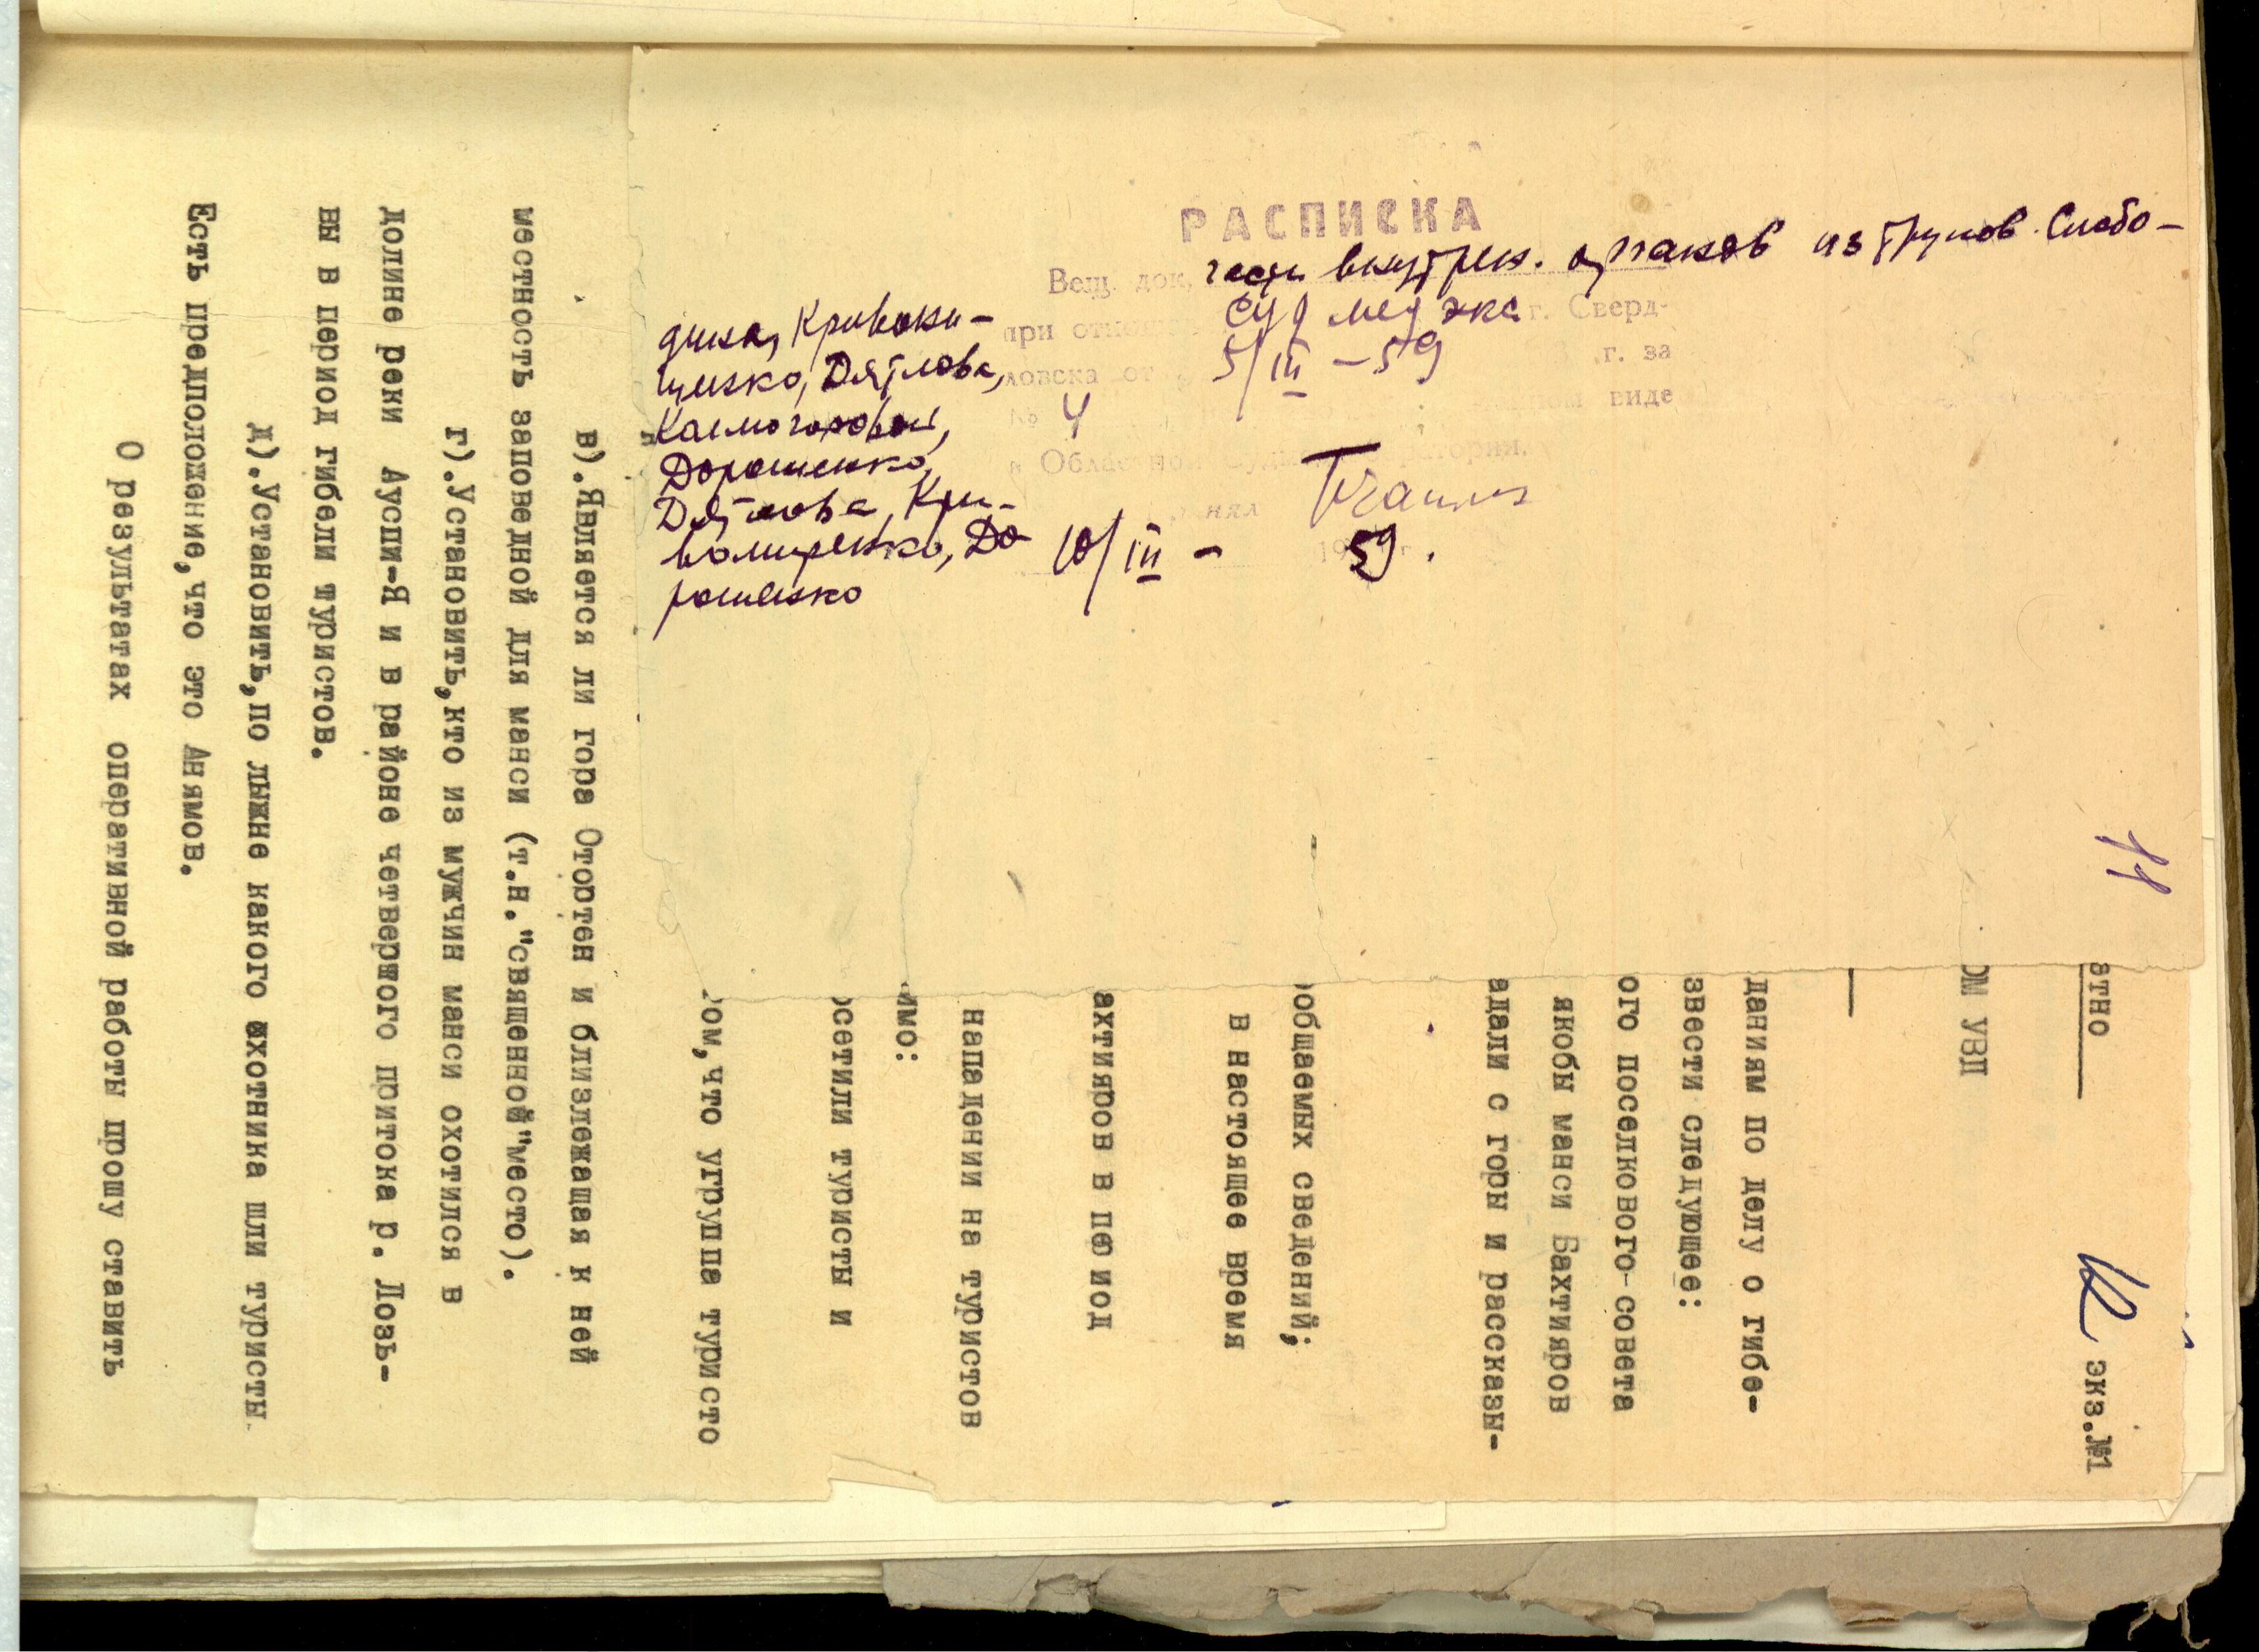 РАСПИСКА
Вещ. док. части внутрен. органов из трупов Слобо-
дина, Кривони-
щенко, Дятлова,
Колмогоровой,
Дорошенко,
Дятлова, Кри-
вонищенко, До-
рошенко
при судмедэкс г. Сверд-
ловска от 5/III-59 г. за
№ 4 виде
в Областной
10/III - 59.
11
атно
12
экз.№1
ом УВД
даниям по делу о гибе-
звести следующее:
ого поселкового-совета
якобы манси Бахтияров
адали с горы и рассказы-
ообщаемых сведений;
в настоящее время
ахтияров в период
нападении на туристов
имо:
осетили туристы и
ом,что угруппа туристо
в).Является ли гора Отортен и близлежащая к ней
местность заповедной для манси (т.н."священной"место).
г).Установить,кто из мужчин манси охотился в
долине реки Ауспи-Я и в районе четвертого притока р. Лозь-
вы в период гибели туристов.
д).Установить,по лыжне какого охотника шли туристы
Есть предположение,что это Анямов.
О результатах оперативной работы прошу ставить